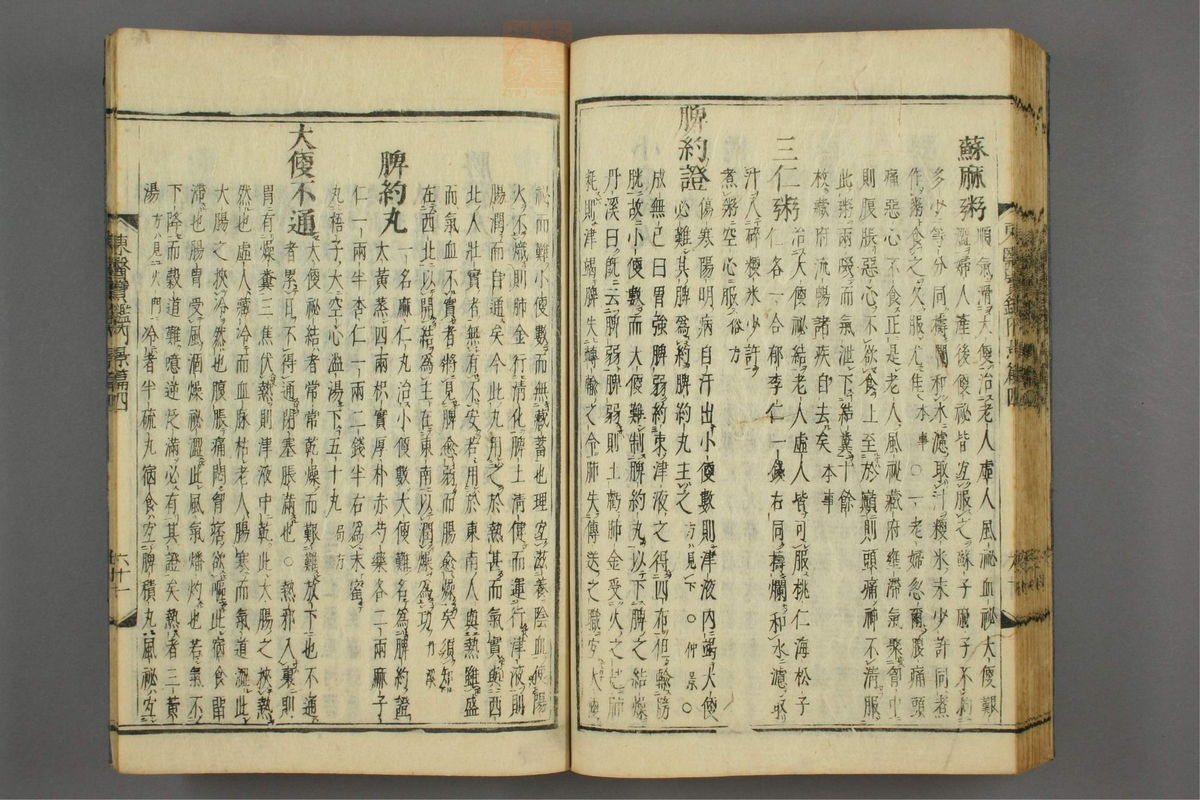 蘇麻粥
順氣滑大便治老人虛人風祕血祕大便艱
澁婦人產後便祕皆宜服之蘇子麻子不拘
多少等分同擣爛和水濾取汁粳米末少許同煮
作粥食之久服尤佳本事〇一老婦忽爾腹痛頭
痛惡心不食正是老人風祕藏府壅滯氣聚胷中
則腹脹惡心不欲食上至於巓則頭痛神不淸服
此粥兩啜而氣泄下結糞十餘
枚藏府流暢諸疾自去矣本事
三仁粥
治大便祕結老人虛人皆可服桃仁海松子
仁各一合郁李仁一錢右同擣爛和水濾取
汁入碎粳米少許
煮粥空心服俗方
脾約證
傷寒陽明病自汗出小便數則津液内竭大便
必難其脾爲約脾約丸主之方見下〇仲景〇
成無己曰胃強脾弱約束津液不得四布但輸膀
胱故小便數而大便難制脾約丸以下脾之結燥
丹溪曰旣云脾弱脾弱則土虧肺金受火之
耗則津竭脾失轉輸之令肺失傳送之職宜大便
祕而難小便數而無藏蓄也理宜滋養陰血使陽
火不熾則肺金行淸化脾土淸健而運行津液則
腸潤而自通矣今此丸用之於熱甚而氣實與西
北人壯實者無有不安若用於東南人與熱雖盛
而氣血不實者將見脾愈弱而腸愈燥矣須知
在西北以開結爲主在東南以潤燥爲功
脾約丸
一名麻仁丸治小便數大便難名爲脾約證
大黃蒸四兩枳實厚朴赤芍藥各二兩麻子
仁一兩半杏仁一兩二錢半右爲末蜜
丸梧子大空心溫湯下五十丸局方
大便不通
大便祕結者常常乾燥而艱難放下也不通
者累日不得通閉塞脹滿也〇熱邪入裏則
胃有燥糞三焦伏熱則津液中乾此大腸之挾熱
然也虛人藏冷而血脉枯老人腸寒而氣道澁此
大腸之挾冷然也腹脹痛悶胷痞欲嘔此宿食留
滯也腸胃受風涸燥祕澁此風氣燔灼也若氣不
下降而穀道難噫逆泛滿必有其證矣熱者三黃
湯方見火門冷者半硫丸宿食宜脾積丸風祕宜
東醫寶鑑内景篇四
六十一